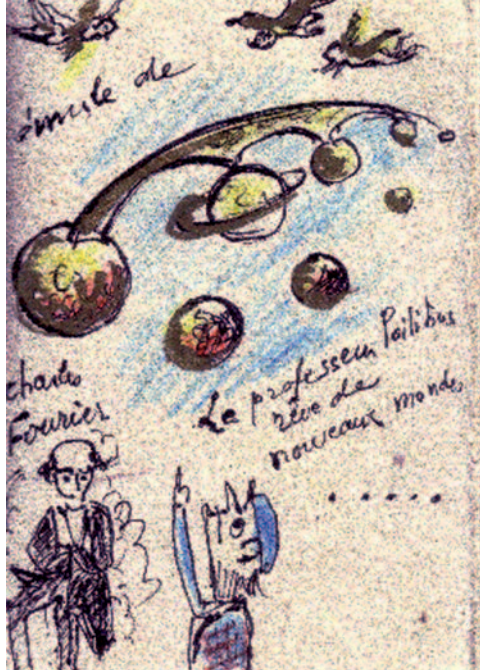 émule de
Charles
Fourier
Le professeur Poilibus
rêve de
nouveaux mondes
.....